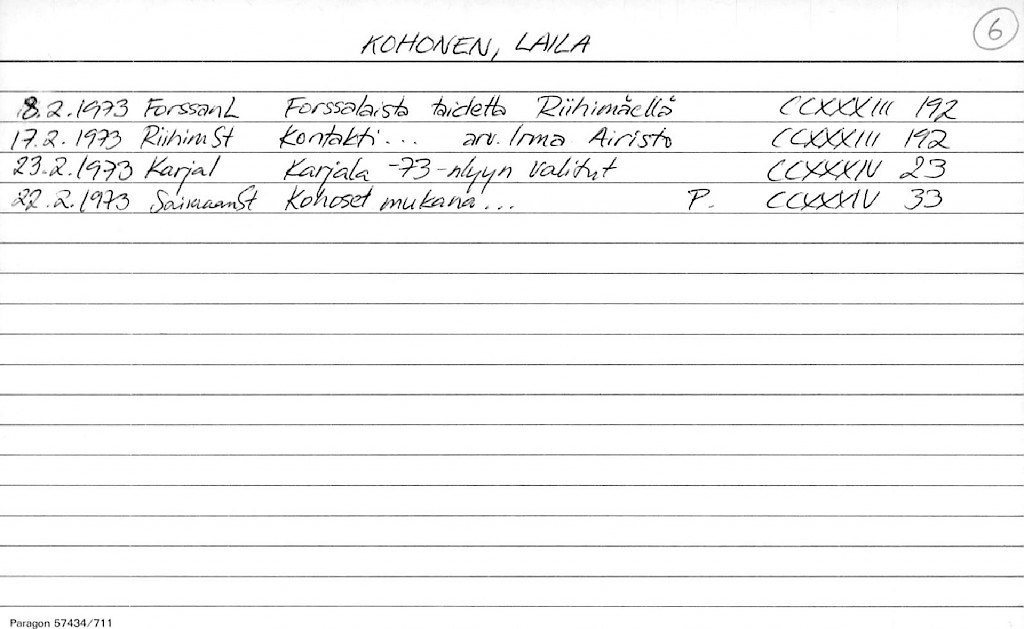 KOHONEN, LAILA
6
8.2.1973 ForssanL Forssalaista taidetta Riihimäellä CCXXXIII 192
17.2.1973 RiihimSt Kontakti... arv. Irma Airisto CCXXXIII 192
23.2.1973 Karjal Karjala -73-nlyyn valitut CCXXXIV 23
22.2.1973 SaimaanSt Kohoset mukana... P. CCXXXIV 33
Paragon 57434/711